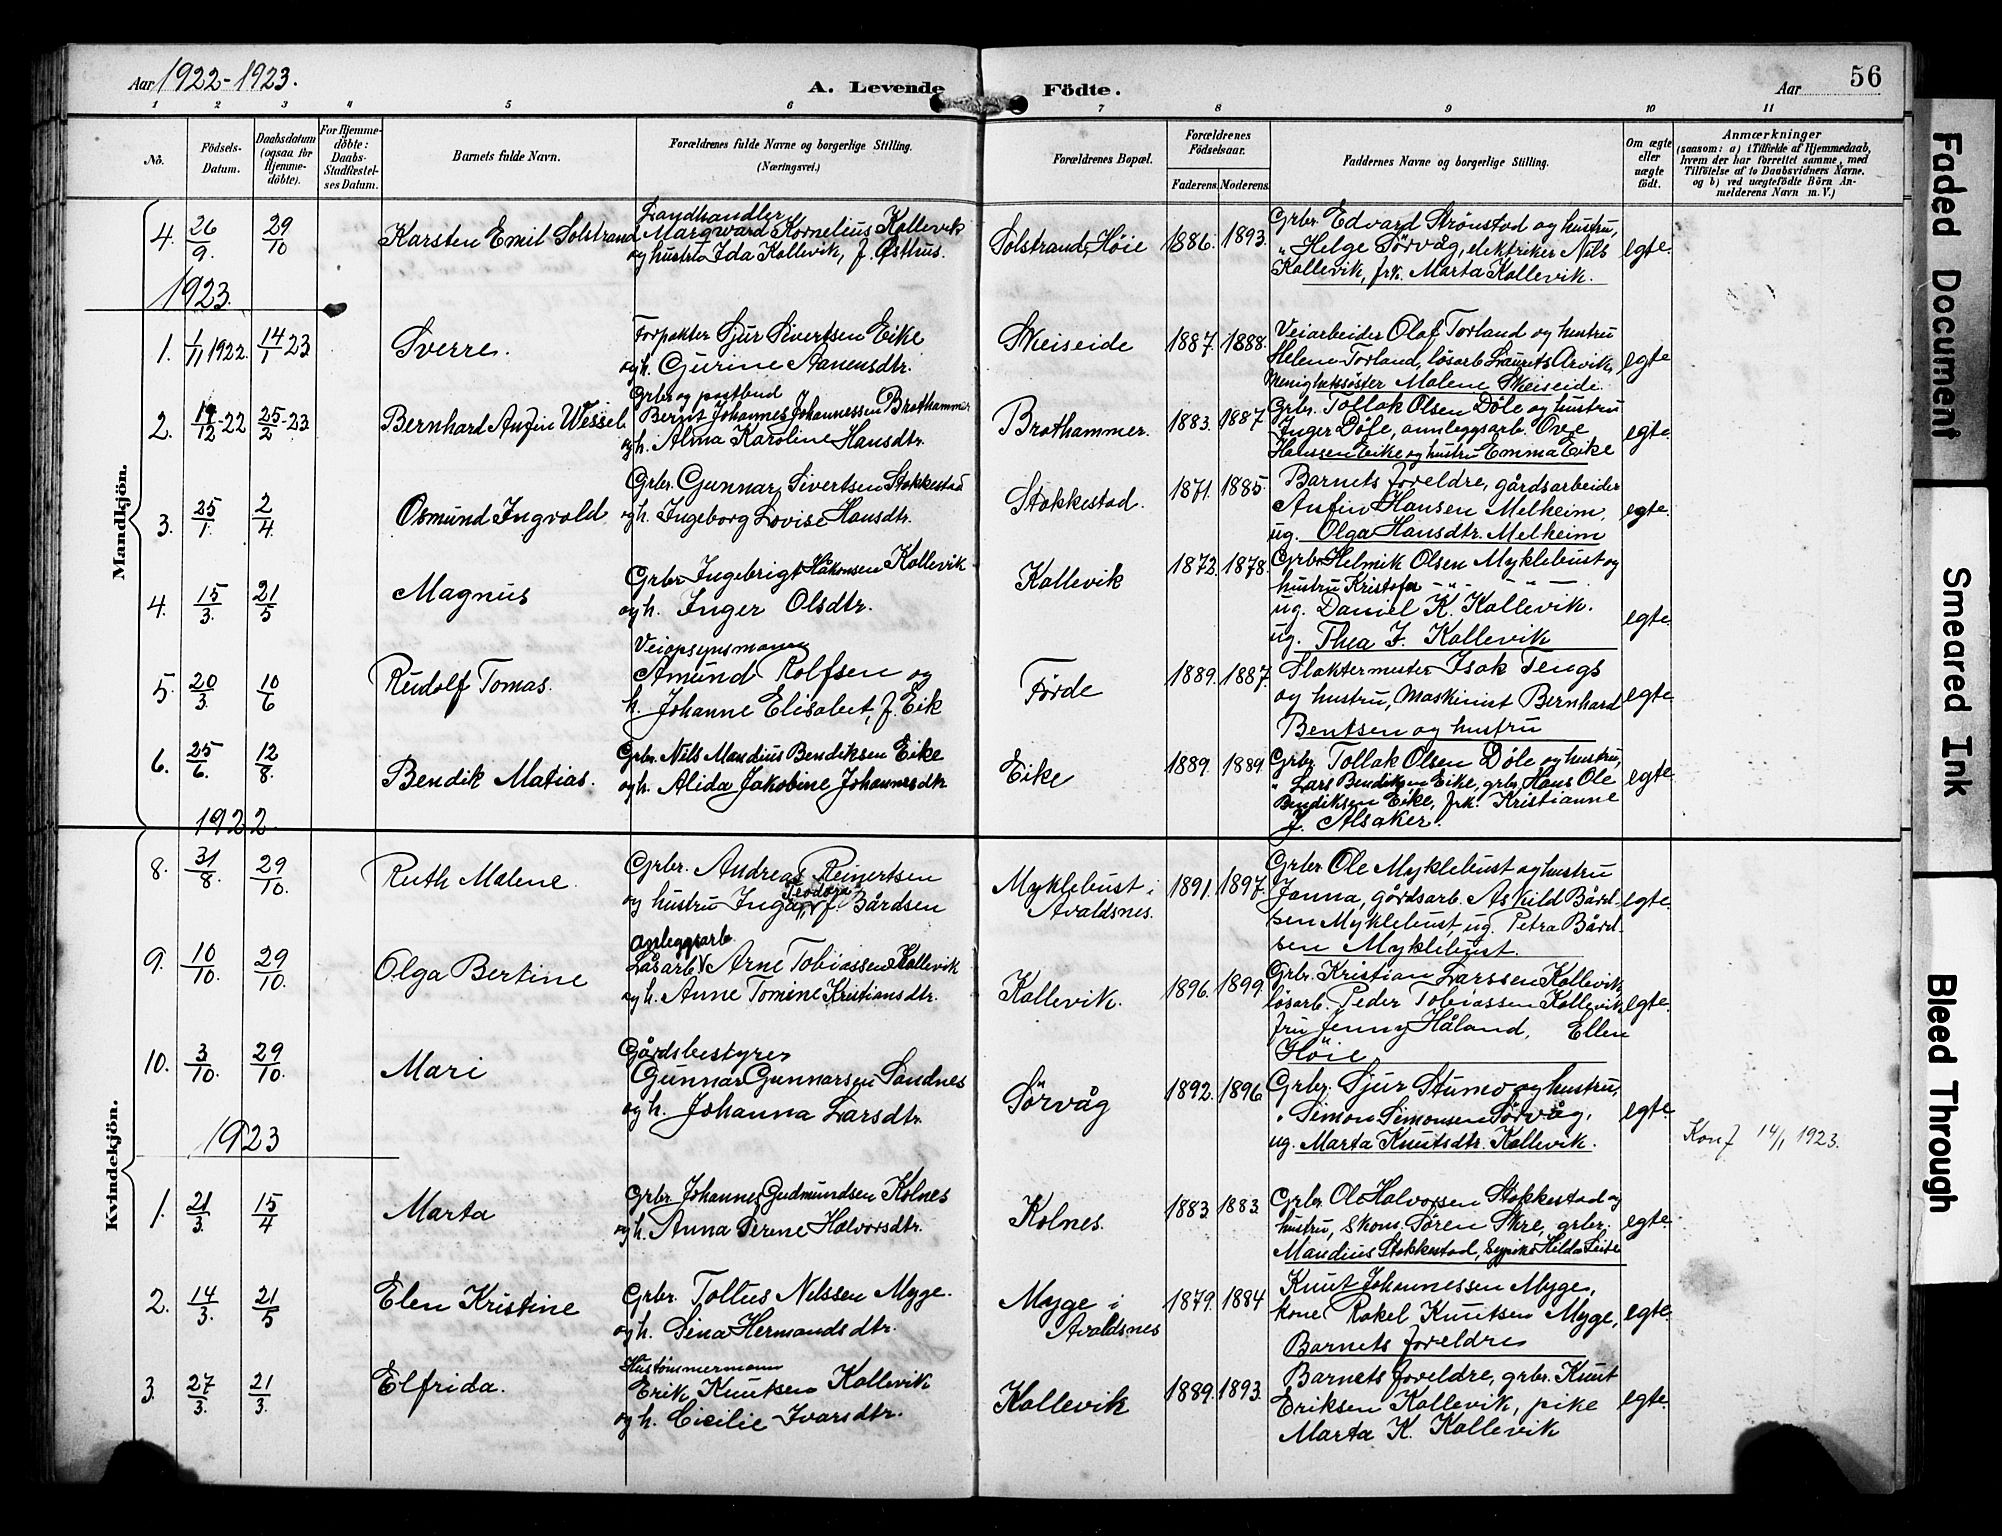 Aar 1922-1923.
A. Levende Födte.
Aar
56
1 2 3 4 5 6 7 8 9 10 11
No.
Födsels-Datum.
Daabsdatum (ogsaa for Hjemme-döbte).
For Hjemme-döbte: Daabs-Stadfæstel-ses Datum.
Barnets fulde Navn.
Forældrenes fulde Navne og borgerlige Stilling.
(Næringsvei.)
Forældrenes Bopæl.
Forældrenes Födselsaar.
Faderens. Moderens.
Faddernes Navne og borgerlige Stilling.
Om ægte eller uægte födt.
Anmærkninger
(saasom: a) i Tilfælde af Hjemmedaab,
hvem der har forrettet samme, med
Tilföielse af to Daabsvidners Navne,
og b) ved uægtefödte Börn An-
melderens Navn m. V.)
Mandkjön.
4. 26/9. 29/10 Karsten Emil Solstrand
Landhandler
Marqward Kornelius Kallevik
og hustru Ida Kallevik, f. Østhus.
Solstrand, Höie 1886. 1893.
Grbr. Edvard Strönstad og hustru,
" Helge Sörvåg, elektriker Nils
Kallevik, frk. Marta Kallevik.
egte.
1923.
1. 1/11 1922. 14/1 23 Sverre.
Forpakter Sjur Sivertsen Eike
og h. Gurine Aanensdtr.
Skeiseide 1887. 1888.
Veiarbeider Olaf Torland og hustru
Helene Torland, løsarb. Laurits Arvik,
Menighetssöster Malene Skeiseide.
egte
2. 14/12-22 25/2-23 Bernhard Anfin Wessel
Grbr. og postbud
Bernt Johannes Johannessen Brathammer
og h. Alma Karoline Hansdtr.
Brathammer. 1883. 1887
Grbr. Tollak Olsen Döle og hustru
Inger Döle, annleggsarb. Ove
Hanssen Eike og hustru Emma Eike
egte.
3. 25/1. 2/4. Osmund Ingvald
Grbr. Gunnar Sivertsen Stakkestad
og h. Ingeborg Lovise Hansdtr.
Stakkestad. 1871. 1885.
Barnets foreldre, gårdsarbeider
Anfin Hansen Melheim,
ug. Olga Hansdtr. Melheim
egte.
4. 15/3. 21/5 Magnus
Grbr. Ingebrigt Håkonsen Kallevik
og h. Inger Olsdtr.
Kallevik 1872. 1878.
Grbr. Helmik Olsen Myklebust og
hustru Kristofa -"- -"-
ug. Daniel K. Kallevik.
ug. Thea I. Kallevik
egte.
5. 20/3. 10/6 Rudolf Tomas.
Veiopsynsmann
Amund Rolfsen og
h. Johanne Elisabet, f. Eik
Førde 1889. 1887.
Slaktermester Isak Tengs
og hustru, Maskinist Bernhard
Bentsen og hustru
egte.
6. 25/6. 12/8. Bendik Matias.
Grbr. Nils Mandius Bendiksen Eike
og h. Alida Jakobine Johannesdtr.
Eike 1889. 1889
Grbr. Tollak Olsen Döle og hustru,
" Lars Bendiksen Eike, grbr. Hans Ole
Bendiksen Eike, frk. Kristianne
J. Alsaker.
egte.
Kvindekjön.
1922.
8. 31/8. 29/10. Ruth Malene.
Grbr. Andreas Reinertsen
og hustru Inga Teodora, f. Bårdsen
Myklebust i
Avaldsnes. 1891. 1897.
Grbr. Ole Myklebust og hustru
Janna, gårdsarb. Askild Bård-
sen Myklebust, ug. Petra Bård-
sen Myklebust.
egte.
9. 10/10. 29/10. Olga Bertine
Anleggsarb.
Løsarb. Arne Tobiassen Kallevik
og h. Anne Tomine Kristiansdtr.
Kallevik. 1896. 1899.
Grbr. Kristian Larssen Kallevik,
løsarb. Peder Tobiassen Kallevik,
fru Jenny Håland, Ellen
Höie
egte.
10. 3/10. 29/10. Mari
Gårdsbestyrer
Gunnar Gunnarsen Sandnes
og h. Johanna Larsdtr.
Sörvåg 1892. 1896
Grbr. Sjur Stumo og hustru,
" Simon Simonsen Sørvåg,
ug. Marta Knutsdtr. Kallevik.
egte
Konf 14/1 1923.
1923
1. 21/3. 15/4 Marta
Grbr. Johannes Gudmundsen Kolnes
og h. Anna Serene Halvorsdtr.
Kolnes. 1883 1883.
Grbr. Ole Halvorsen Stakkestad og
hustru, skom. Sören Skre, grbr.
Mandius Stakkestad, sypike Hilda Leite
egte.
2. 14/3. 21/5 Elen Kristine
Grbr. Tollus Nilssen Myge.
og h. Sina Hermandsdtr.
Myge i
Avaldsnes 1879. 1884
Knut Johannessen Myge,
kone Rakel Knutsen Myge,
Barnets foreldre
egte.
3. 27/3. 21/3. Elfrida.
Hustömmermann
Erik Knutsen Kallevik
og h. Cicilie Ivarsdtr.
Kallevik 1889. 1893.
Barnets foreldre, grbr. Knut
Eriksen Kallevik, pike
Marta K. Kallevik
egte.
Faded Document
Smeared Ink
Bleed Through